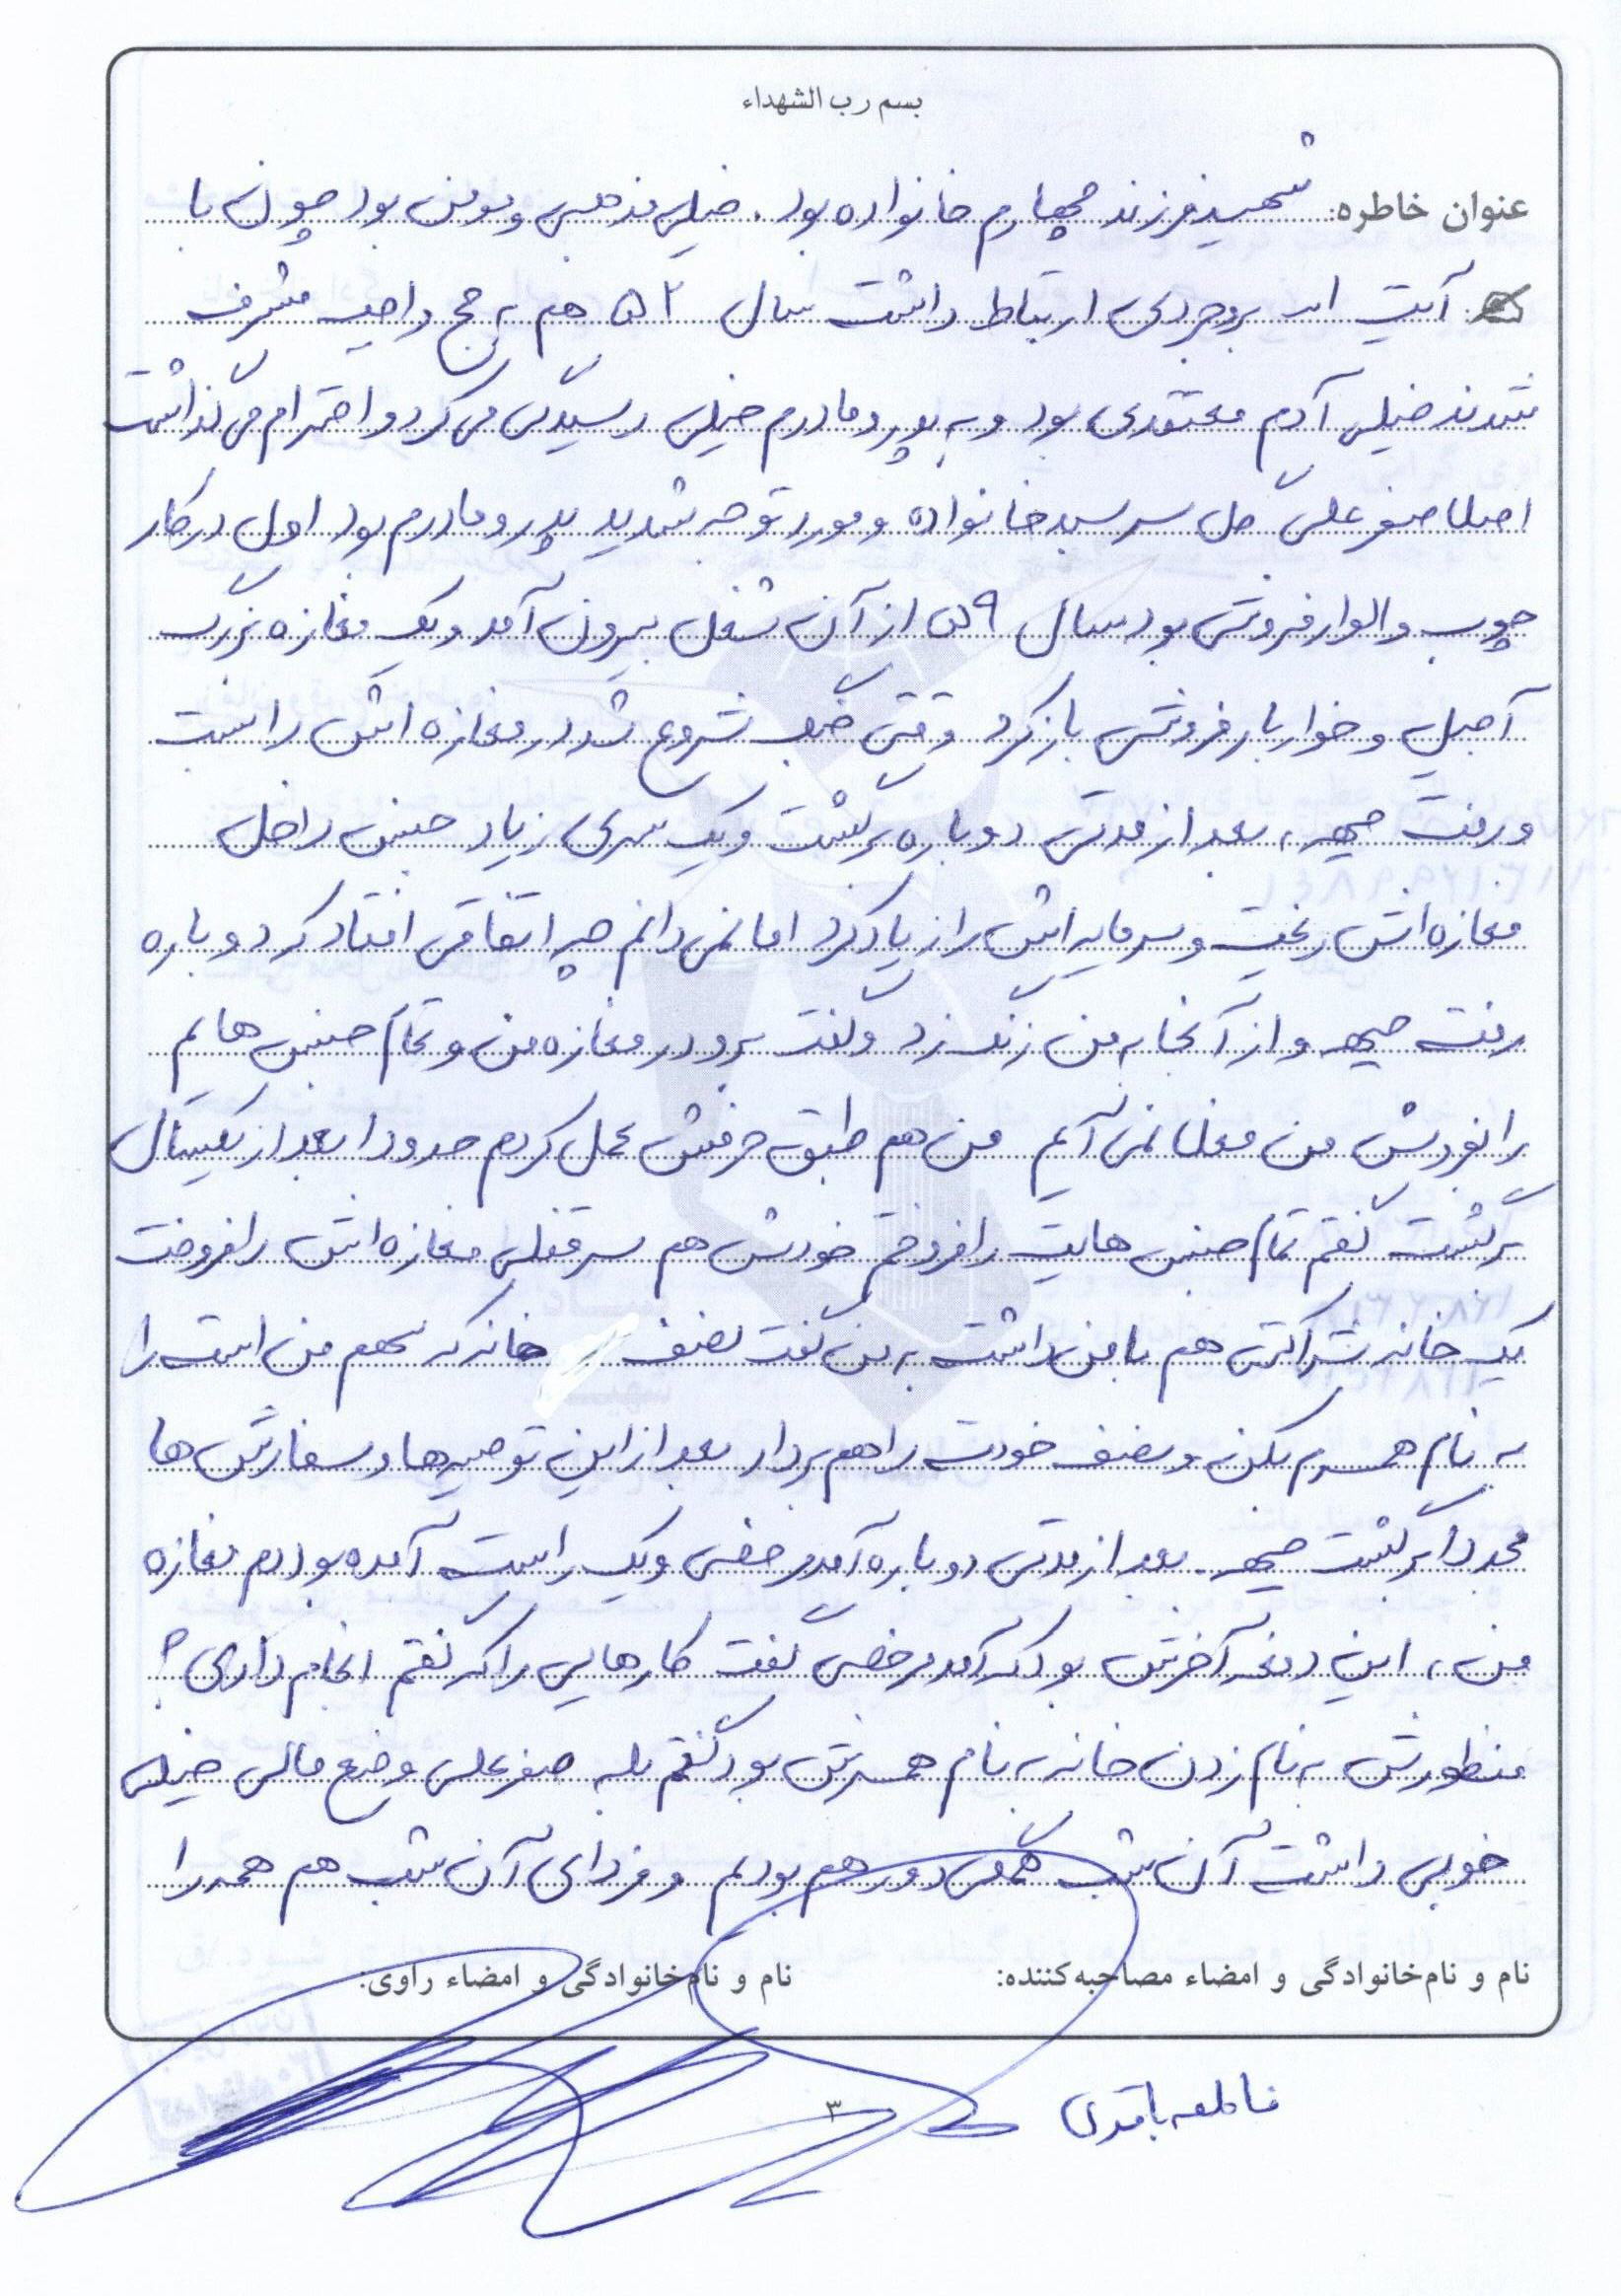 بسم رب الشهداء
عنوان خاطره: شهید فرزند چهارم خانواده بود. خیلی مذهبی و مومن بود چون با
آیت اله بروجردی ارتباط داشت سال ۵۲ هم به حج واجب مشرف
شدند خیلی آدم معتقدی بود و به پدر و مادرم خیلی رسیدگی می کرد و احترام می گذاشت
اصلا صفر علی گل سر سبد خانواده و مورد توجه شدید پدر و مادرم بود اول در کار
چوب و الوار فروشی بود سال ۵۹ از آن شغل بیرون آمد و یک مغازه بزرگ
آجیل و خواربار فروشی باز کرد وقتی جنگ شروع شد در مغازه اش را بست
و رفت جبهه، بعد از مدتی دوباره برگشت و یک سری زیاد جنس داخل
مغازه اش ریخت و سرمایه اش را زیاد کرد اما نمی دانم چه اتفاقی افتاد که دوباره
رفت جبهه و از آنجا به من زنگ زد و گفت برو در مغازه من و تمام جنس هایم
را بفروش من فعلا نمی آیم من هم طبق حرفش عمل کردم حدودا بعد از یکسال
برگشت گفتم تمام جنس هایت را فروختم خودش هم سرقفلی مغازه اش را فروخت
یک خانه شراکتی هم با من داشت به من گفت نصف خانه که سهم من است را
به نام همسرم بکن و نصف خودت را هم بردار بعد از این توصیه ها و سفارش ها
مجددا برگشت جبهه. بعد از مدتی دوباره آمد مرخصی و یک راست آمده بود دم مغازه
من، این دفعه آخرش بود که آمد مرخصی گفت کارهایی را که گفتم انجام دادی؟
منظورش به نام زدن خانه به نام همسرش بود گفتم بله صفر علی وضع مالی خیلی
خوبی داشت آن شب همگی دور هم بودیم و فردای آن شب هم همه را
نام و نام‌خانوادگی و امضاء مصاحبه‌کننده: نام و نام‌خانوادگی و امضاء راوی:
فاطمه باقری
۳